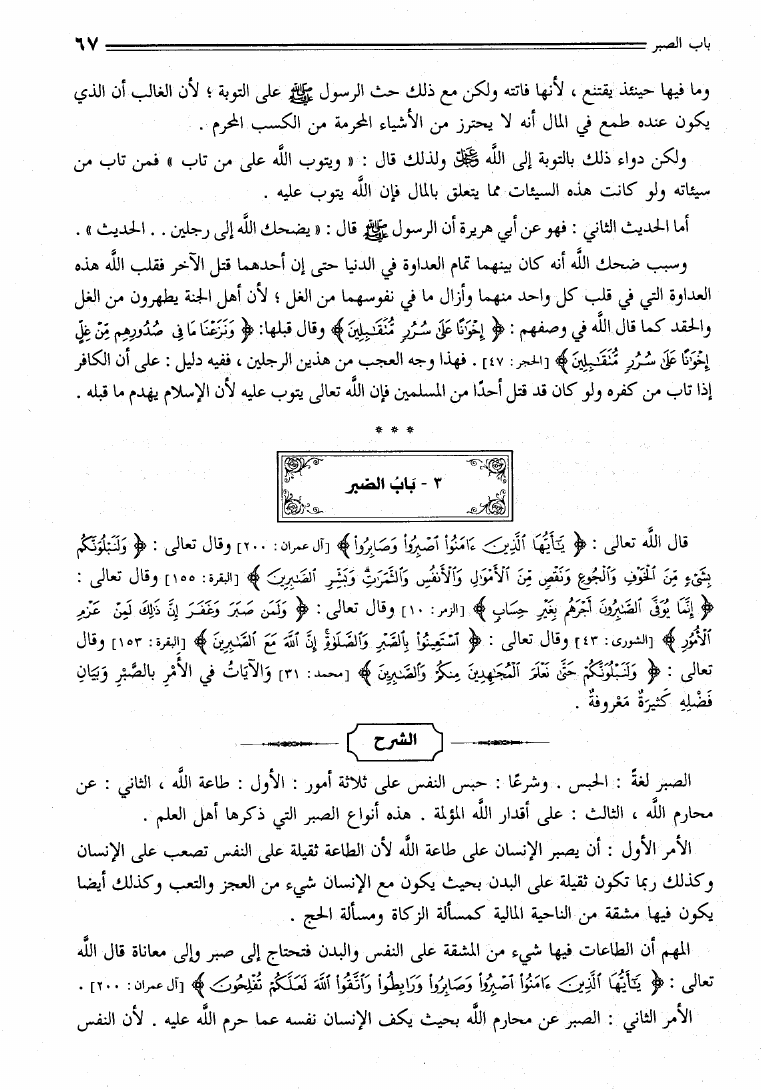 باب الصبر ٦٧
وما فيها حينئذ يقتنع ، لأنها فاتته ولكن مع ذلك حث الرسول ﷺ على التوبة ؛ لأن الغالب أن الذي
يكون عنده طمع في المال أنه لا يحترز من الأشياء المحرمة من الكسب المحرم .
ولكن دواء ذلك بالتوبة إلى الله ﷿ ولذلك قال : « ويتوب الله على من تاب » فمن تاب من
سيئاته ولو كانت هذه السيئات مما يتعلق بالمال فإن الله يتوب عليه .
أما الحديث الثاني : فهو عن أبي هريرة أن الرسول ﷺ قال : « يضحك الله إلى رجلين . . الحديث » .
وسبب ضحك الله أنه كان بينهما تمام العداوة في الدنيا حتى إن أحدهما قتل الآخر فقلب الله هذه
العداوة التي في قلب كل واحد منهما وأزال ما في نفوسهما من الغل ؛ لأن أهل الجنة يطهرون من الغل
والحقد كما قال الله في وصفهم : ﴿ إِخْوَٰنًا عَلَىٰ سُرُرٍ مُّتَقَٰبِلِينَ ﴾ وقال قبلها: ﴿ وَنَزَعْنَا مَا فِى صُدُورِهِم مِّنْ غِلٍّ
إِخْوَٰنًا عَلَىٰ سُرُرٍ مُّتَقَٰبِلِينَ ﴾ [الحجر: ٤٧] . فهذا وجه العجب من هذين الرجلين ، ففيه دليل : على أن الكافر
إذا تاب من كفره ولو كان قد قتل أحدًا من المسلمين فإن الله تعالى يتوب عليه لأن الإسلام يهدم ما قبله .
* * *
٣ - بَابُ الصَّبر
قال الله تعالى : ﴿ يَٰٓأَيُّهَا ٱلَّذِينَ ءَامَنُوا۟ ٱصْبِرُوا۟ وَصَابِرُوا۟ ﴾ [آل عمران: ٢٠٠] وقال تعالى : ﴿ وَلَنَبْلُوَنَّكُم
بِشَىْءٍ مِّنَ ٱلْخَوْفِ وَٱلْجُوعِ وَنَقْصٍ مِّنَ ٱلْأَمْوَٰلِ وَٱلْأَنفُسِ وَٱلثَّمَرَٰتِ وَبَشِّرِ ٱلصَّٰبِرِينَ ﴾ [البقرة: ١٥٥] وقال تعالى :
﴿ إِنَّمَا يُوَفَّى ٱلصَّٰبِرُونَ أَجْرَهُم بِغَيْرِ حِسَابٍ ﴾ [الزمر: ١٠] وقال تعالى : ﴿ وَلَمَن صَبَرَ وَغَفَرَ إِنَّ ذَٰلِكَ لَمِنْ عَزْمِ
ٱلْأُمُورِ ﴾ [الشورى: ٤٣] وقال تعالى : ﴿ ٱسْتَعِينُوا۟ بِٱلصَّبْرِ وَٱلصَّلَوٰةِ إِنَّ ٱللَّهَ مَعَ ٱلصَّٰبِرِينَ ﴾ [البقرة: ١٥٣] وقال
تعالى : ﴿ وَلَنَبْلُوَنَّكُمْ حَتَّىٰ نَعْلَمَ ٱلْمُجَٰهِدِينَ مِنكُمْ وَٱلصَّٰبِرِينَ ﴾ [محمد: ٣١] وَالآيَاتُ في الأمْرِ بالصَّبْرِ وَبَيَانِ
فَضْلِهِ كَثِيرَةٌ مَعْرُوفَةٌ .
الشرح
الصبر لغةً : الحبس . وشرعًا : حبس النفس على ثلاثة أمور : الأول : طاعة الله ، الثاني : عن
محارم الله ، الثالث : على أقدار الله المؤلمة . هذه أنواع الصبر التي ذكرها أهل العلم .
الأمر الأول : أن يصبر الإنسان على طاعة الله لأن الطاعة ثقيلة على النفس تصعب على الإنسان
وكذلك ربما تكون ثقيلة على البدن بحيث يكون مع الإنسان شيء من العجز والتعب وكذلك أيضا
يكون فيها مشقة من الناحية المالية كمسألة الزكاة ومسألة الحج .
المهم أن الطاعات فيها شيء من المشقة على النفس والبدن فتحتاج إلى صبر وإلى معاناة قال الله
تعالى : ﴿ يَٰٓأَيُّهَا ٱلَّذِينَ ءَامَنُوا۟ ٱصْبِرُوا۟ وَصَابِرُوا۟ وَرَابِطُوا۟ وَٱتَّقُوا۟ ٱللَّهَ لَعَلَّكُمْ تُفْلِحُونَ ﴾ [آل عمران: ٢٠٠] .
الأمر الثاني : الصبر عن محارم الله بحيث يكف الإنسان نفسه عما حرم الله عليه . لأن النفس